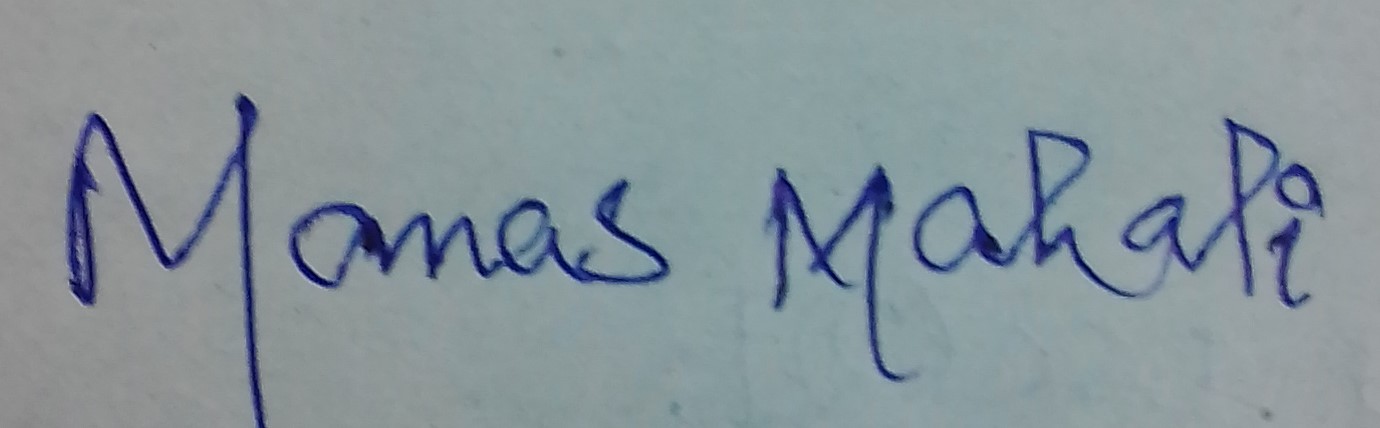 Manas Mahali